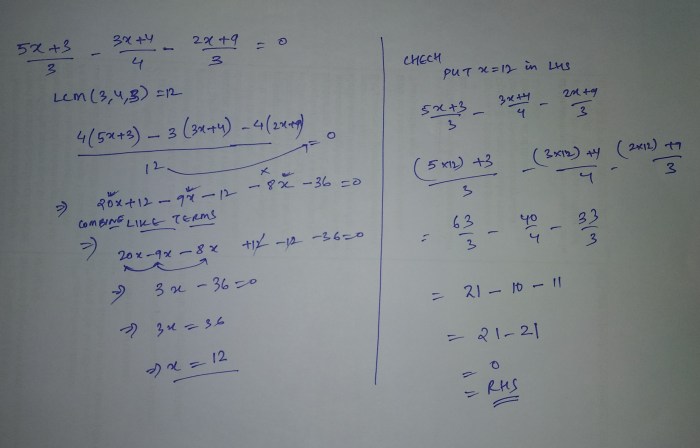 5x+3/3 - 3x+4/4 - 2x+9/3 = 0
LCM(3,4,3)=12
4(5x+3) - 3(3x+4) - 4(2x+9)/12 = 0
⇒ 20x+12 - 9x - 12 - 8x - 36 = 0
COMBINE LIKE TERMS
⇒ 20x - 9x - 8x +12 - 12 - 36=0
⇒ 3x - 36=0
⇒ 3x = 36
⇒ x = 12
CHECK
PUT x=12 in LHS
5x+3/3 - 3x+4/4 - 2x+9/3
(5×12)+3/3 - (3×12)+4/4 - (2×12)+9/3
= 63/3 - 40/4 - 33/3
= 21 - 10 - 11
= 21 - 21
= 0
= RHS